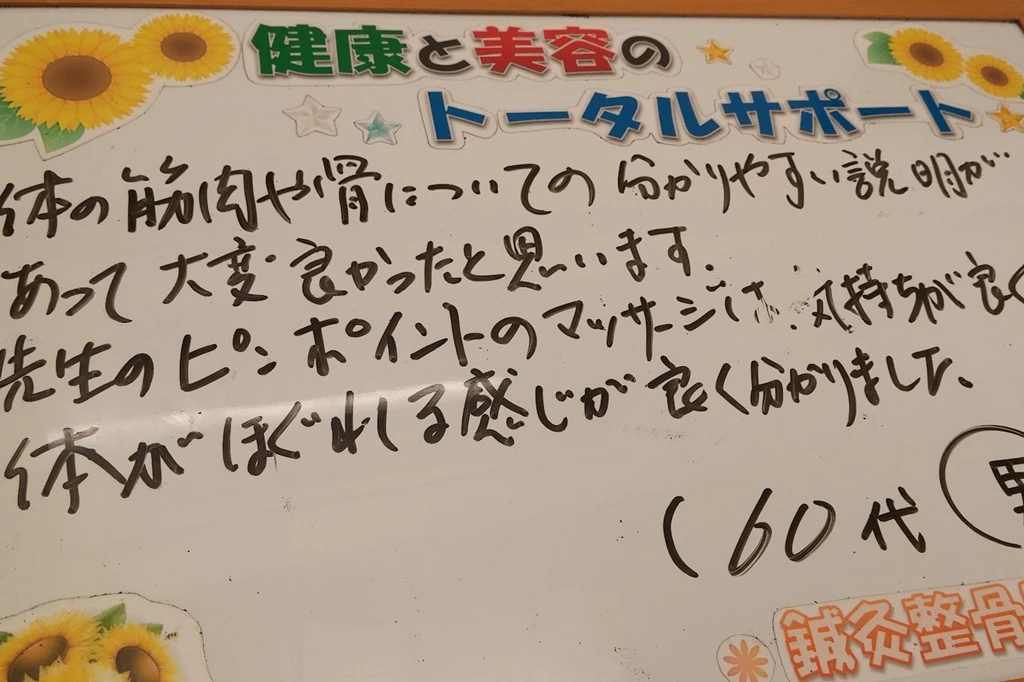 健康と美容の
トータルサポート
体の筋肉や骨についての分かりやすい説明が
あって大変良かったと思います.
先生のピンポイントのマッサージは、気持ちが良く
体がほぐれる感じが良く分かりました、
(60代
鍼灸整骨